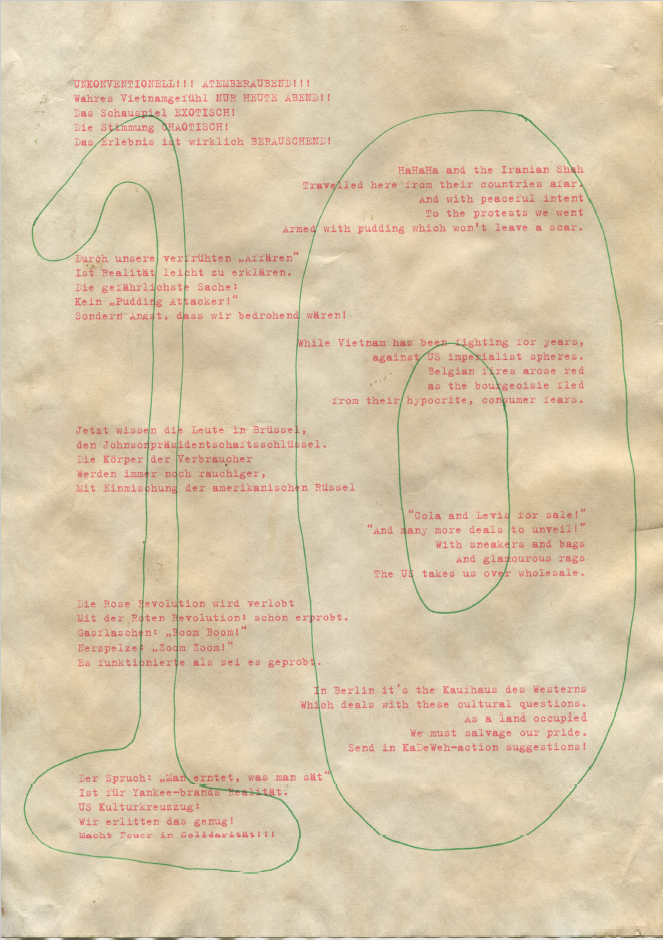 UNKONVENTIONELL!!! ATEMBERAUBEND!!!
Wahres Vietnamgefühl NUR HEUTE ABEND!!
Das Schauspiel EXOTISCH!
Die Stimmung CHAOTISCH!
Das Erlebnis ist wirklich BERAUSCHEND!
HaHaHa and the Iranian Shah
Travelled here from their countries afar.
And with peaceful intent
To the protests we went
Armed with pudding which won't leave a scar.
Durch unsere verfrühten „Affären“
Ist Realität leicht zu erklären.
Die gefährlichste Sache:
Kein „Pudding Attacker!“
Sondern Angst, dass wir bedrohend wären!
While Vietnam has been fighting for years,
against US imperialist spheres.
Belgian fires arose red
as the bourgeoisie fled
from their hypocrite, consumer fears.
Jetzt wissen die Leute in Brüssel,
den Johnsonpräsidentschaftsschlüssel.
Die Körper der Verbraucher
Werden immer noch rauchiger,
Mit Einmischung der amerikanischen Rüssel
"Cola and Levis for sale!"
"And many more deals to unveil!"
With sneakers and bags
And glamourous rags
The US takes us over wholesale.
Die Rose Revolution wird verlobt
Mit der Roten Revolution: schon erprobt.
Gasflaschen: „Boom Boom!“
Nerzpelze: „Zoom Zoom!“
Es funktionierte als sei es geprobt.
In Berlin it's the Kaufhaus des Westerns
Which deals with these cultural questions.
As a land occupied
We must salvage our pride.
Send in KaDeWeh-action suggestions!
Der Spruch: „Man erntet, was man sät“
Ist für Yankee-brands Realität.
US Kulturkreuzzug:
Wir erlitten das genug!
Macht Feuer in Solidarität!!!
10